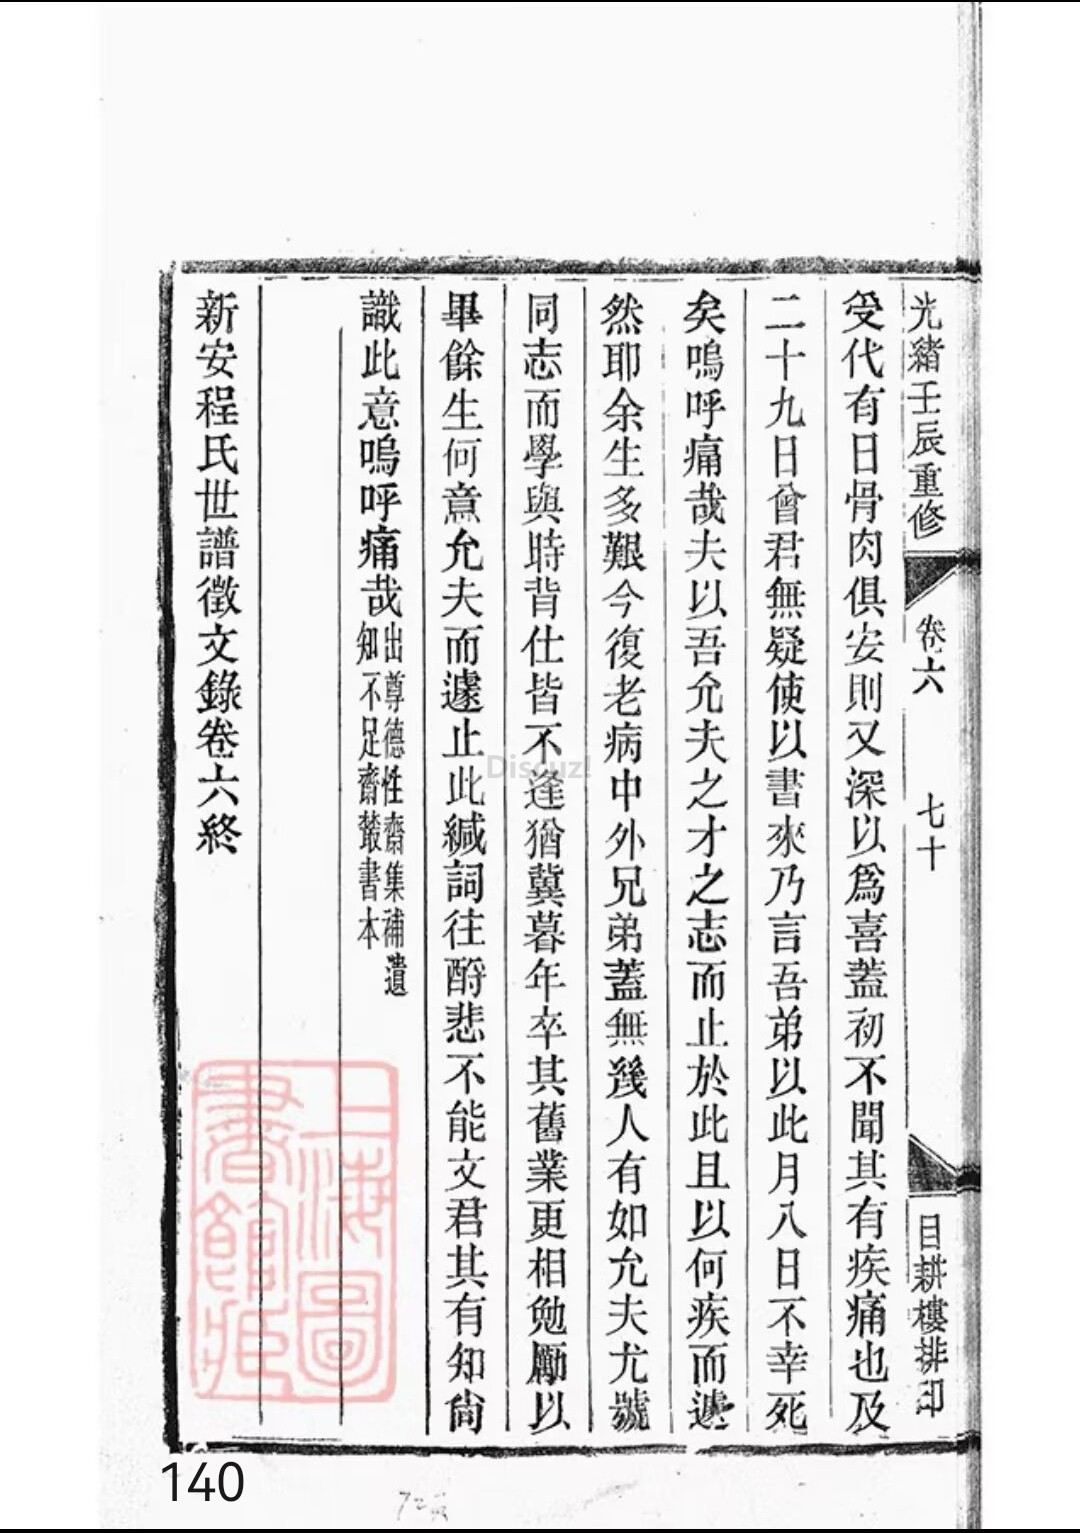 光緒壬辰重修
卷六
七十
目耕樓排印
受代有日骨肉俱安則又深以爲喜蓋初不聞其有疾痛也及
二十九日曾君無疑使以書來乃言吾弟以此月八日不幸死
矣嗚呼痛哉夫以吾允夫之才之志而止於此且以何疾而遽
然耶余生多艱今復老病中外兄弟蓋無幾人有如允夫尤號
同志而學與時背仕皆不逢猶冀暮年卒其舊業更相勉勵以
畢餘生何意允夫而遽止此緘詞往酹悲不能文君其有知尙
識此意嗚呼痛哉
出尊德性齋集補遺
知不足齋叢書本
新安程氏世譜徵文錄卷六終
上海圖
書館藏
Discuz!
140